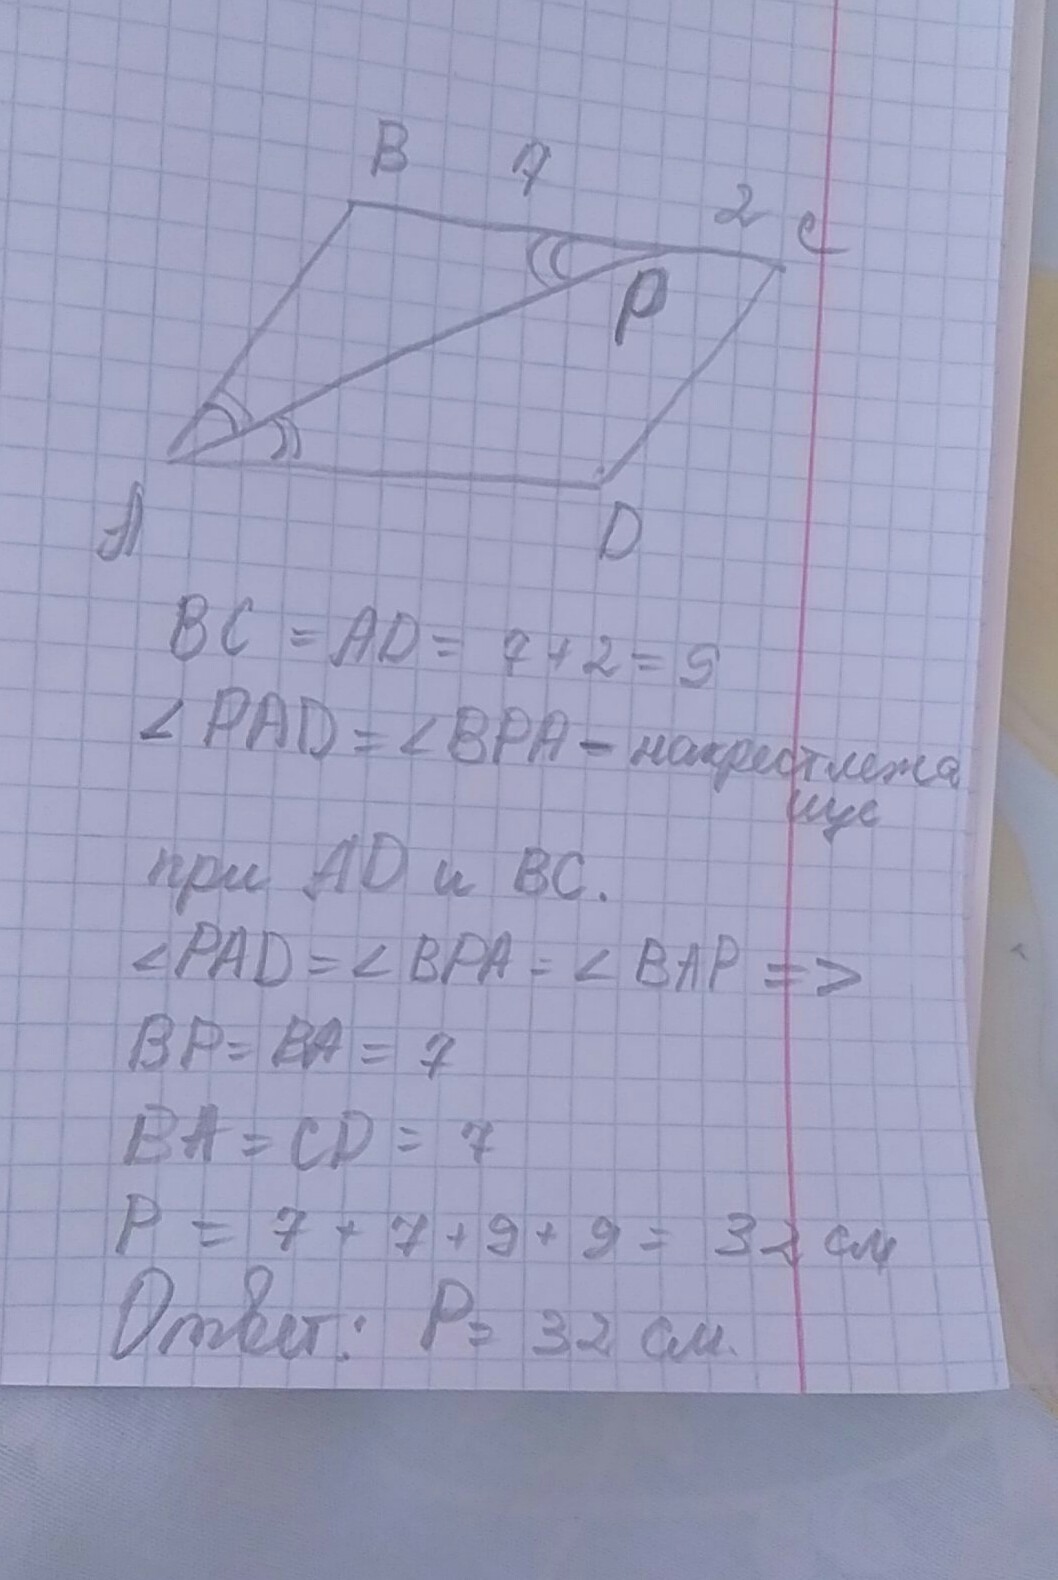 B 7 2 C
P
A D
BC = AD = 7 + 2 = 9
∠PAD = ∠BPA - накрестлежа
щие
при AD и BC.
∠PAD = ∠BPA = ∠BAP =>
BP = BA = 7
BA = CD = 7
P = 7 + 7 + 9 + 9 = 32 см
Ответ: P = 32 см.